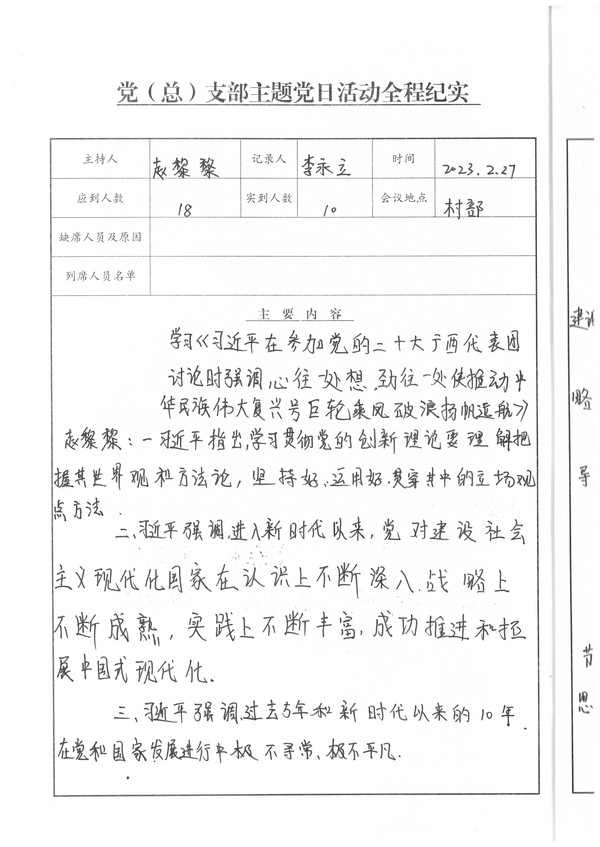 党（总）支部主题党日活动全程纪实
主持人 赵黎黎 记录人 李永立 时间 2023.2.27
应到人数 18 实到人数 10 会议地点 村部
缺席人员及原因
列席人员名单
主要内容
学习《习近平在参加党的二十大广西代表团
讨论时强调心往一处想，劲往一处使推动中
华民族伟大复兴号巨轮乘风破浪扬帆远航》
赵黎黎：一习近平指出，学习贯彻党的创新理论要理解把
握其世界观和方法论，坚持好、运用好、贯穿其中的立场观
点方法．
二、习近平强调，进入新时代以来，党对建设社会
主义现代化国家在认识上不断深入，战略上
不断成熟，实践上不断丰富，成功推进和拓
展中国式现代化．
三、习近平强调，过去5年和新时代以来的10年
在党和国家发展进行中极不寻常、极不平凡．
建设
略
导
节
思